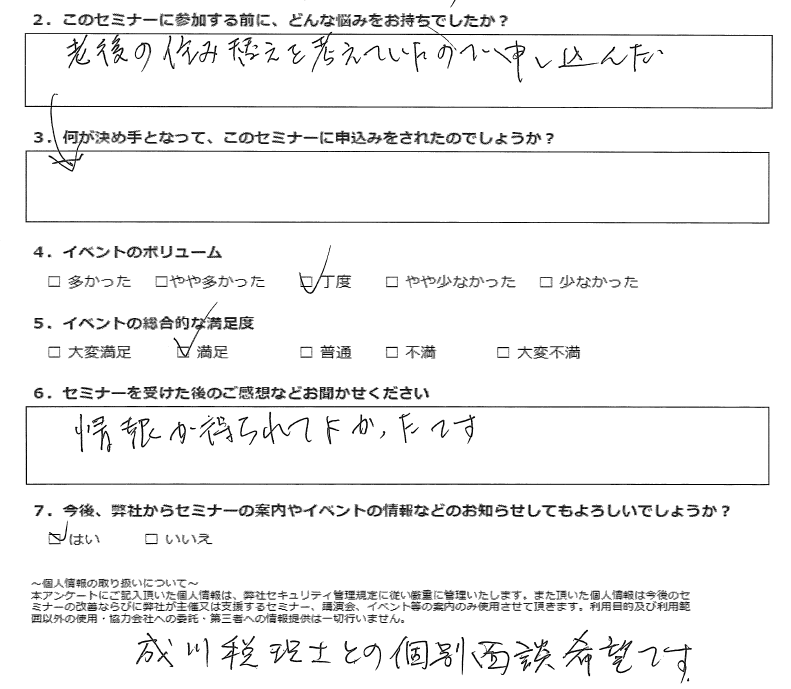 2．このセミナーに参加する前に、どんな悩みをお持ちでしたか？
老後の住み替えを考えていたので申し込んだ
3．何が決め手となって、このセミナーに申込みをされたのでしょうか？
4．イベントのボリューム
□ 多かった □やや多かった ☑ 丁度 □ やや少なかった □ 少なかった
5．イベントの総合的な満足度
□ 大変満足 ☑ 満足 □ 普通 □ 不満 □ 大変不満
6．セミナーを受けた後のご感想などお聞かせください
情報が得られてよかったです
7．今後、弊社からセミナーの案内やイベントの情報などのお知らせしてもよろしいでしょうか？
☑はい □ いいえ
～個人情報の取り扱いについて～
本アンケートにご記入頂いた個人情報は、弊社セキュリティ管理規定に従い厳重に管理いたします。また頂いた個人情報は今後のセ
ミナーの改善ならびに弊社が主催又は支援するセミナー、講演会、イベント等の案内のみ使用させて頂きます。利用目的及び利用範
囲以外の使用・協力会社への委託・第三者への情報提供は一切行いません。
成川税理士との個別面談希望です